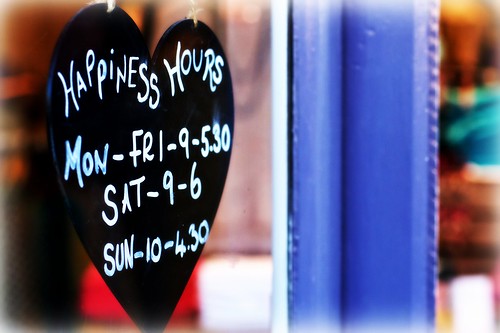 HAPPINESS HOURS
MON-FRI-9-5.30
SAT-9-6
SUN-10-4.30